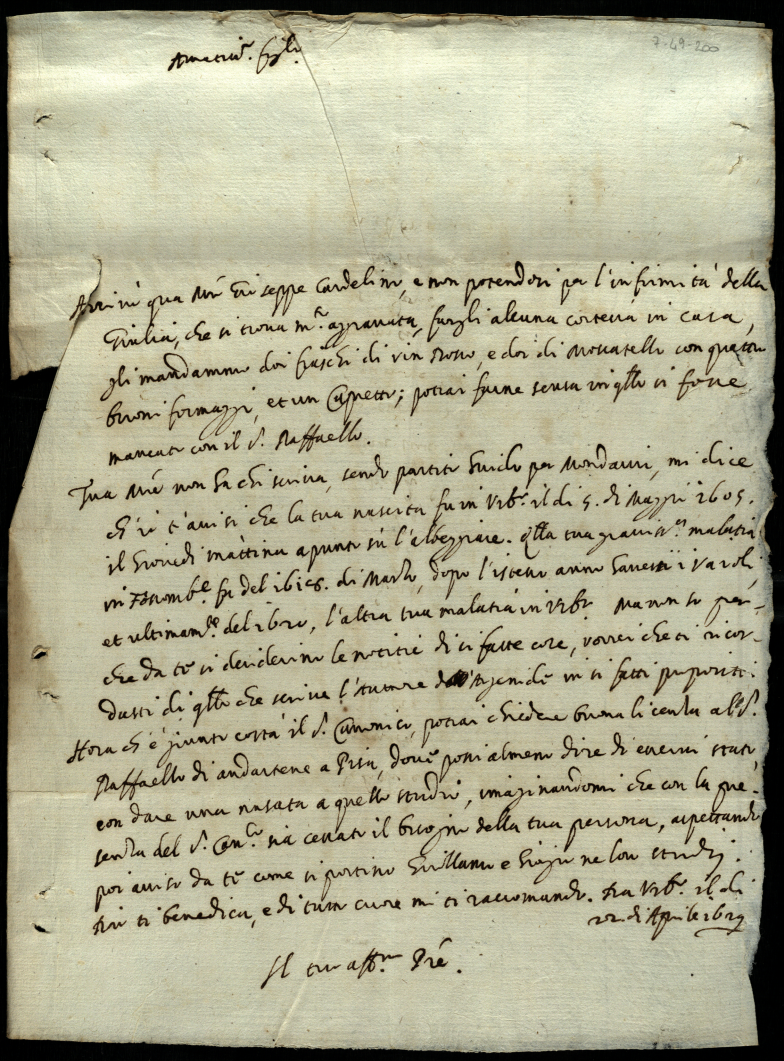 7-49-200
Amatiss.º figl.º
Arrivò qua Mr Giuseppe Cardelino, e non potendosi per l'infirmità della
Giulia, che si trova m.to aggravata, fargli alcuna cortesia in casa,
gli mandammo doi fiaschi di vin rosso, e doi di Moscatello con quattro
buoni formaggi, et un Capretto; potrai farne scusa in qllo si fosse
mancato con il S. Raffaello.
Tua Mre non ha chi scriva, sendo partito Guido per Mondavi, mi dice
ch'io t'avisi che la tua nascita fu in Urb.º il di 5. di Maggio 1605.
il Giovedì mattina apunto sù l'albeggiare. Qlla tua graviss.ma malatia
in fu del 1618. di Marzo, dopo l'istesso anno havesti i varoli,
et ultimam.te del 1620, l'altra tua malatia in Urb.º Ma non so per-
che da tè si desiderino le notitie di si fatte cose, vorrei che ti ricor-
dasti di qllo che scrive l'autore dell'Argenide in si fatti propositi.
Hora ch'è giunto costà il S. Canonico, potrai chiedere buona licenza al S.
Raffaello di andartene a Pisa, dove possi almeno dire di esservi stato,
con dare una nasata a quello studio, imaginandomi che con la pre-
senza del S. Can.co sia cessato il bisogno della tua persona, aspettando
poi aviso da tè come si portino e ne loro studij.
Dio ti benedica, e di tutto cuore mi ti raccomando. Da Urb.º il di
22. di Aprile 1629
Il tuo aff.mo Prè.